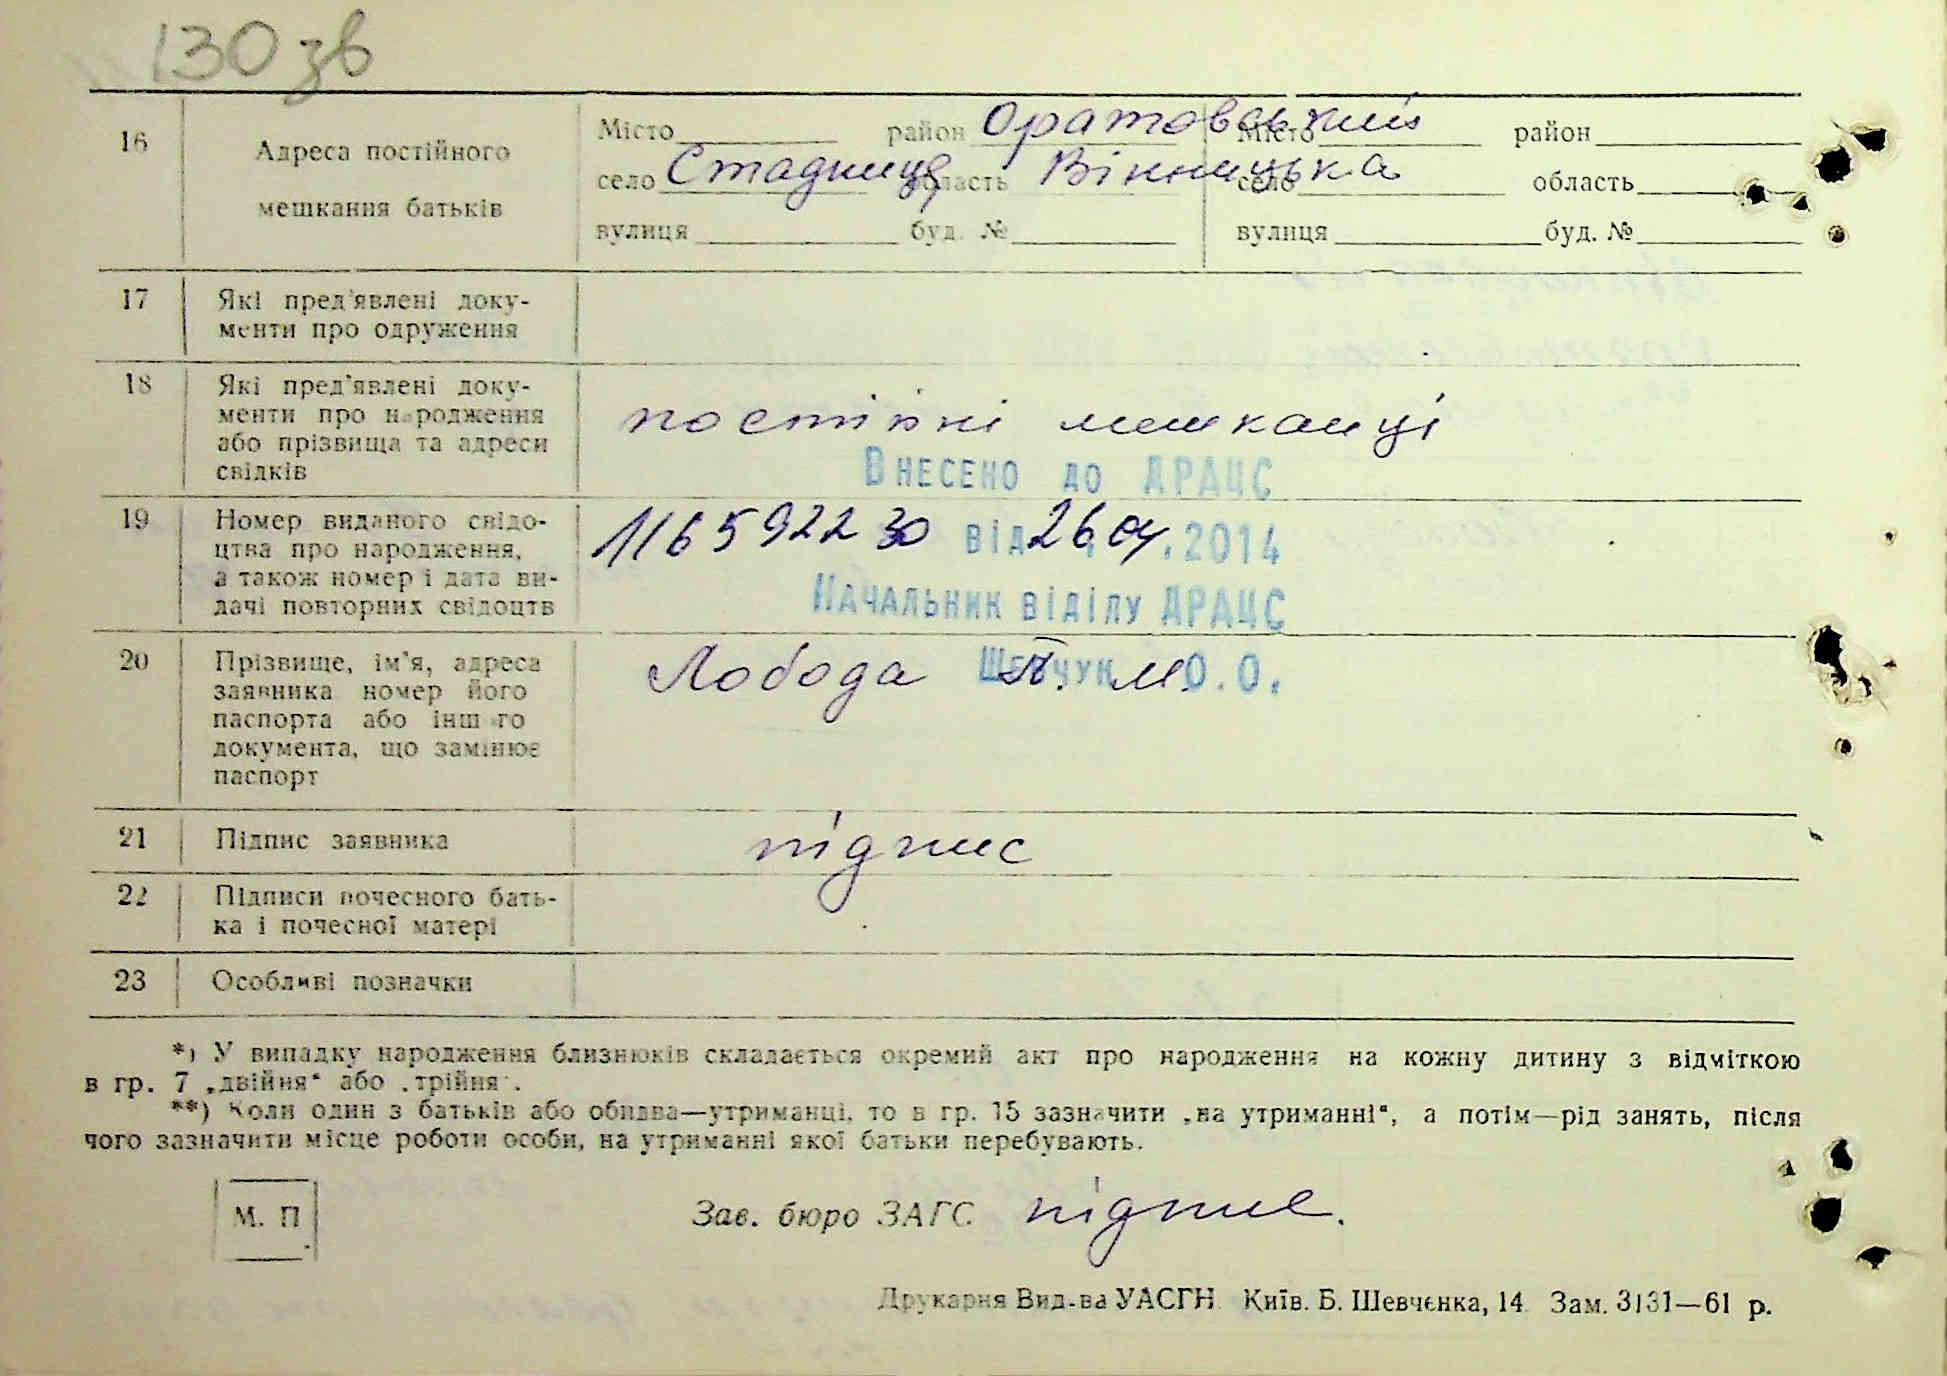 130 зв
16
Адреса постійного
мешкання батьків
Місто район Оратовський
село Стадниця область Вінницька
вулиця буд. №
Місто район
село область
вулиця буд. №
17
Які пред'явлені доку-
менти про одруження
18
Які пред'явлені доку-
менти про народження
або прізвища та адреси
свідків
постійні мешканці
Внесено до ДРАЦС
19
Номер виданого свідо-
цтва про народження,
а також номер і дата ви-
дачі повторних свідоцтв
1165922 30 від 26.04.2014
Начальник відділу ДРАЦС
20
Прізвище, ім'я, адреса
заявника номер його
паспорта або іншого
документа, що замінює
паспорт
Лобода М.
Шевчук О.О.
21
Підпис заявника
підпис
22
Підписи почесного бать-
ка і почесної матері
23
Особливі позначки
*) У випадку народження близнюків складається окремий акт про народження на кожну дитину з відміткою
в гр. 7 „двійня“ або „трійня“.
**) Коли один з батьків або обидва—утриманці, то в гр. 15 зазначити „на утриманні“, а потім—рід занять, після
чого зазначити місце роботи особи, на утриманні якої батьки перебувають.
М. П.
Зав. бюро ЗАГС підпис.
Друкарня Вид-ва УАСГН. Київ. Б. Шевченка, 14. Зам. 3131—61 р.